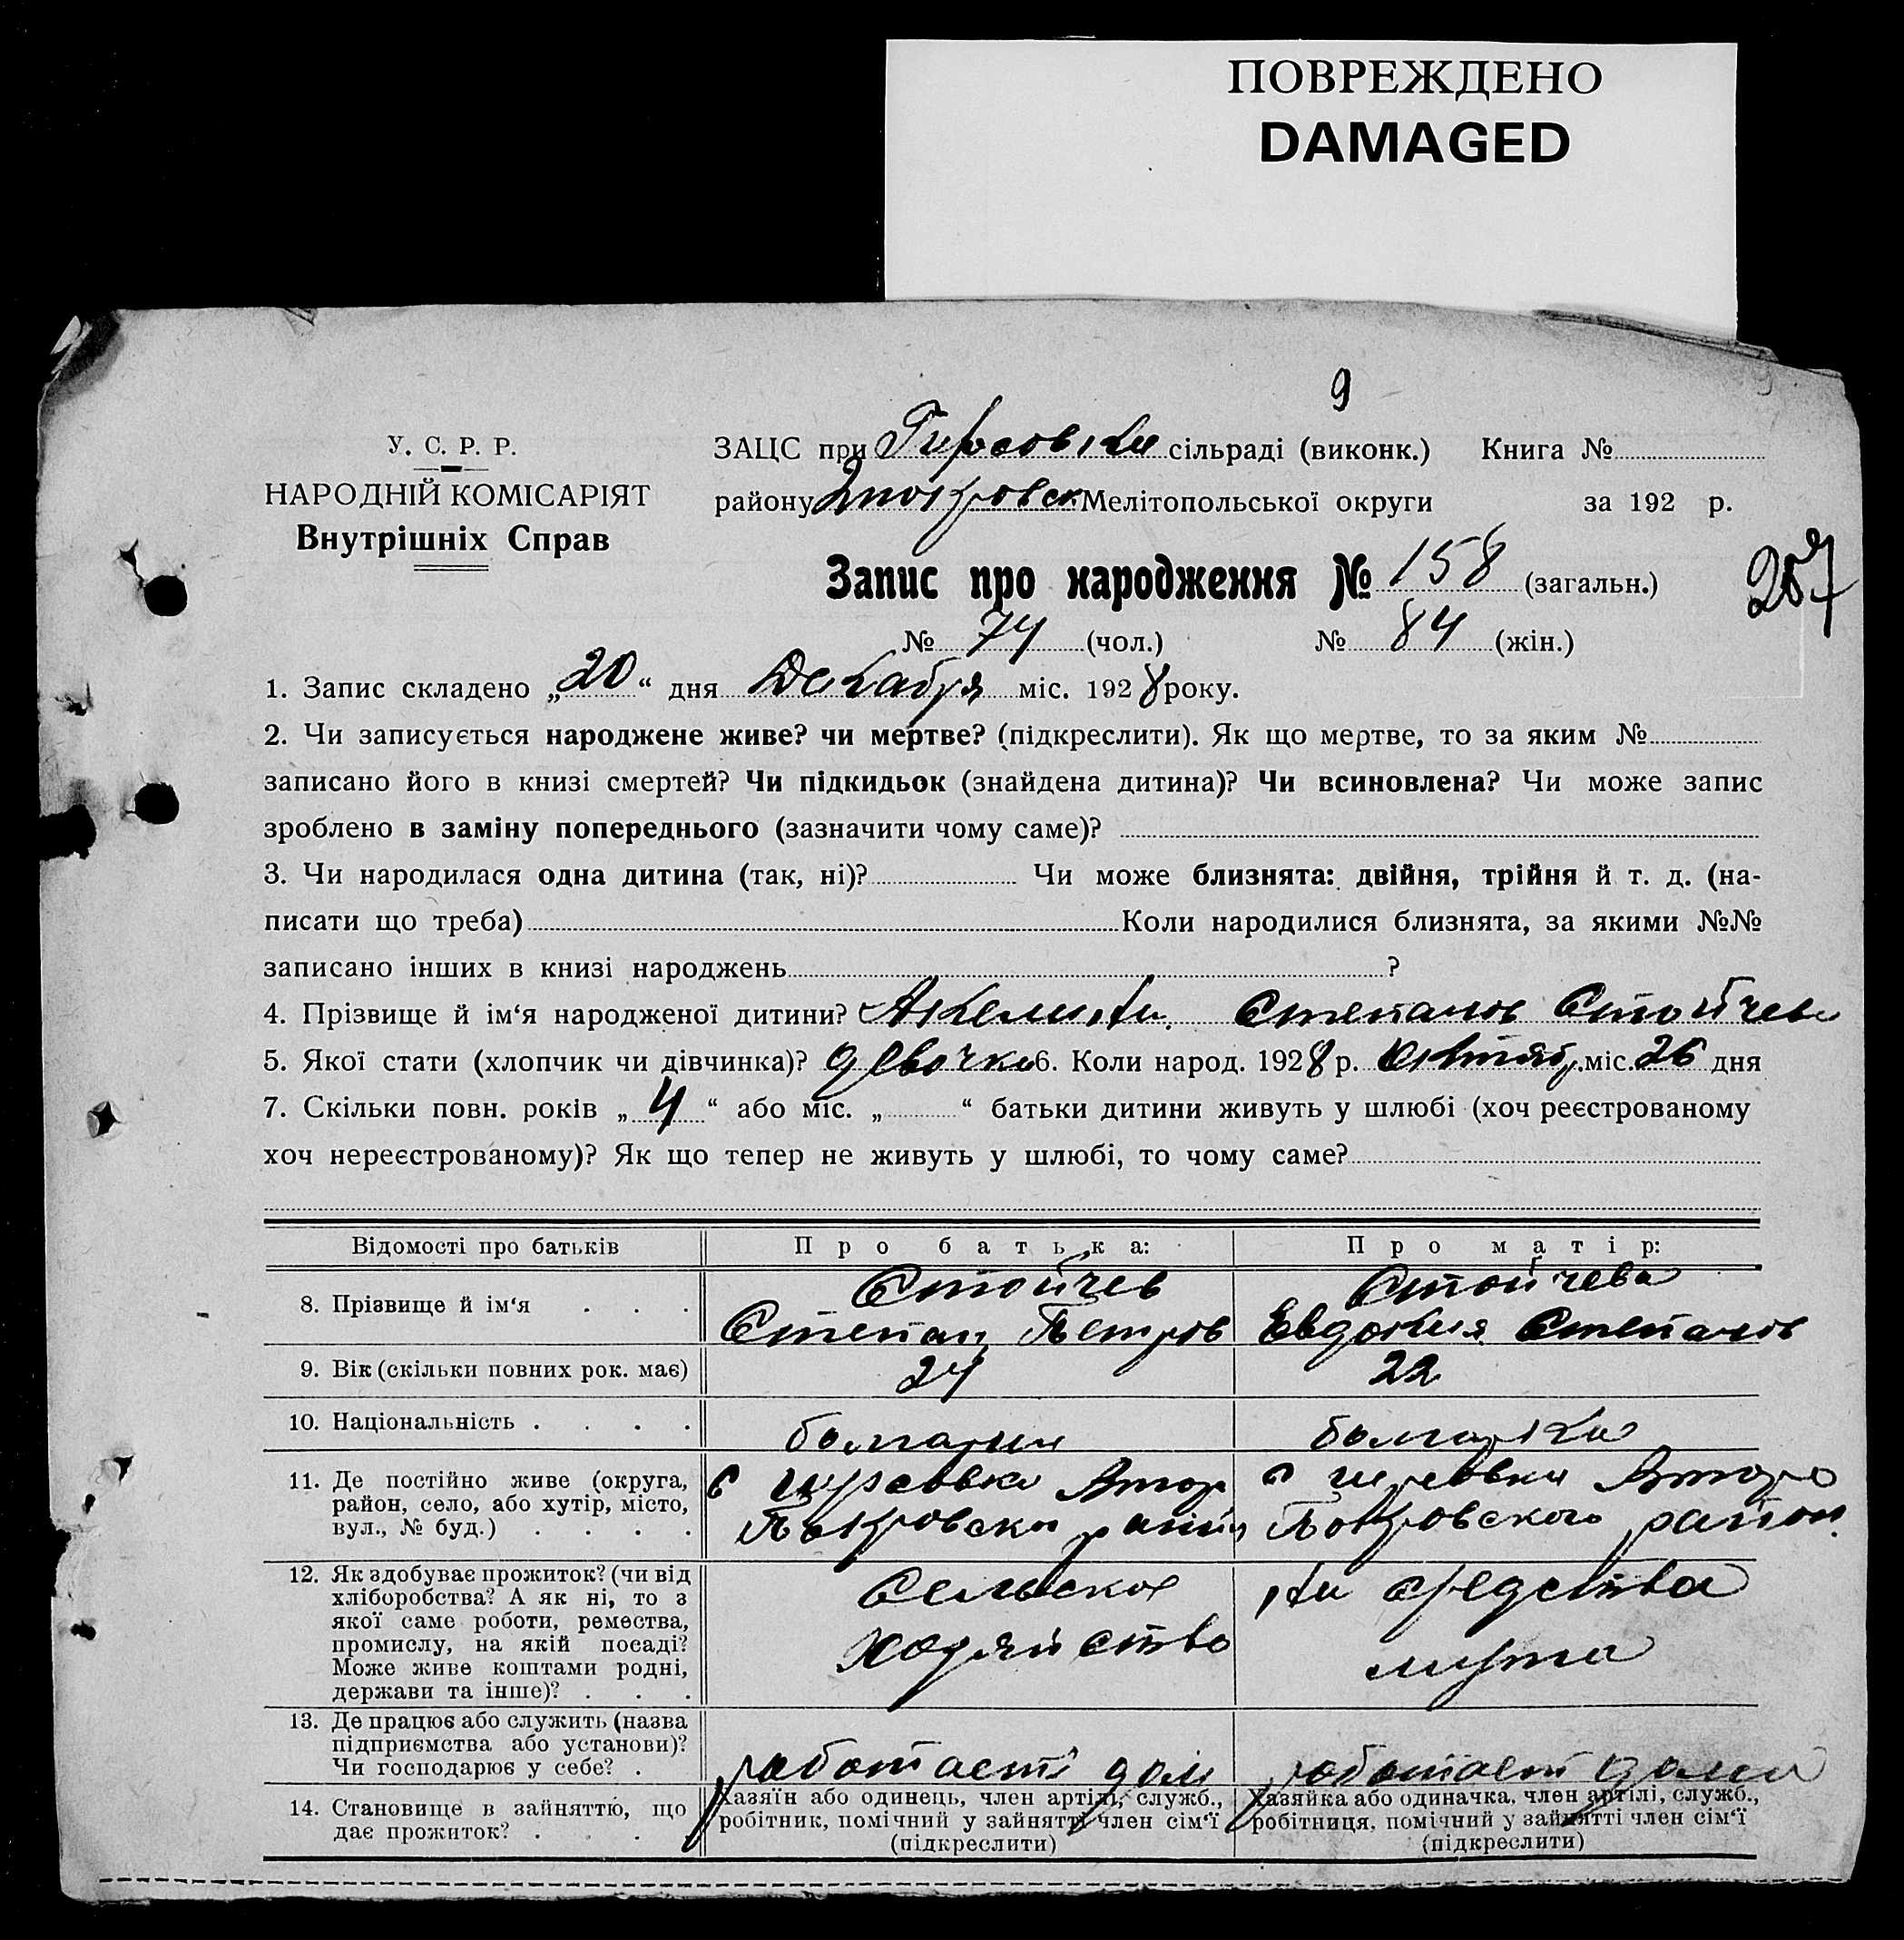 ПОВРЕЖДЕНО
DAMAGED
9
У. С. Р. Р.
НАРОДНІЙ КОМІСАРІЯТ
Внутрішніх Справ
ЗАЦС при Гирсовки сільраді (виконк.) Книга №
району 2покровск Мелітопольської округи за 192 р.
Запис про народження № 158 (загальн.)
257
№ 74 (чол.) № 84 (жін.)
1. Запис складено „20“ дня Декабря міс. 1928 року.
2. Чи записується народжене живе? чи мертве? (підкреслити). Як що мертве, то за яким №
записано його в книзі смертей? Чи підкидьок (знайдена дитина)? Чи всиновлена? Чи може запис
зроблено в заміну попереднього (зазначити чому саме)?
3. Чи народилася одна дитина (так, ні)? Чи може близнята: двійня, трійня й т. д. (на-
писати що треба) Коли народилися близнята, за якими №№
записано інших в книзі народжень ?
4. Прізвище й ім‘я народженої дитини? Степанов Стойчева
5. Якої стати (хлопчик чи дівчинка)? девочка 6. Коли народ. 1928 р. Октябр. міс. 26 дня
7. Скільки повн. років „4“ або міс. „ “ батьки дитини живуть у шлюбі (хоч реєстрованому
хоч нереєстрованому)? Як що тепер не живуть у шлюбі, то чому саме?
Відомості про батьків Про батька: Про матір:
8. Прізвище й ім‘я . . . Стойчев Стойчева
Степан Петров Евдокия Степанов
9. Вік (скільки повних рок. має) 24 22
10. Національність . . . . болгарин болгарка
11. Де постійно живе (округа, район, село, або хутір, місто, вул., № буд.) . . . .
с гирсовка Втор Покровски район
с гирсовки Второ Покровского район.
12. Як здобуває прожиток? (чи від хліборобства? А як ні, то з якої саме роботи, ремества, промислу, на якій посаді? Може живе коштами родні, держави та інше)? . . .
Сельское хозяйство
на средства мужа
13. Де працює або служить (назва підприємства або установи)? Чи господарює у себе? .
работает дом
работает дома
14. Становище в зайняттю, що дає прожиток? . . . .
Хазяїн або одинець, член артілі, служб., робітник, помічний у зайнятті член сім‘ї (підкреслити)
Хазяйка або одиначка, член артілі, служб., робітниця, помічний у зайнятті член сім‘ї (підкреслити)